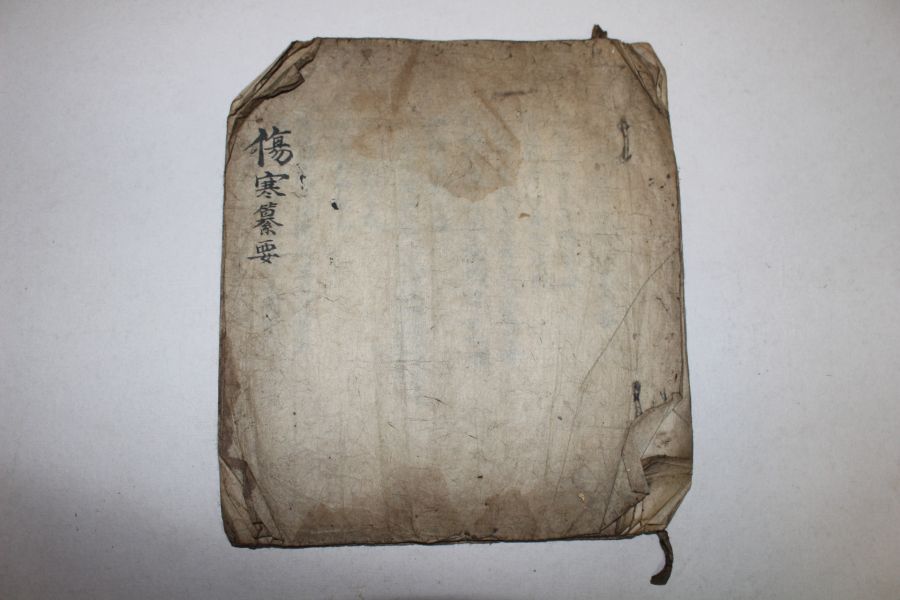 傷寒纂要